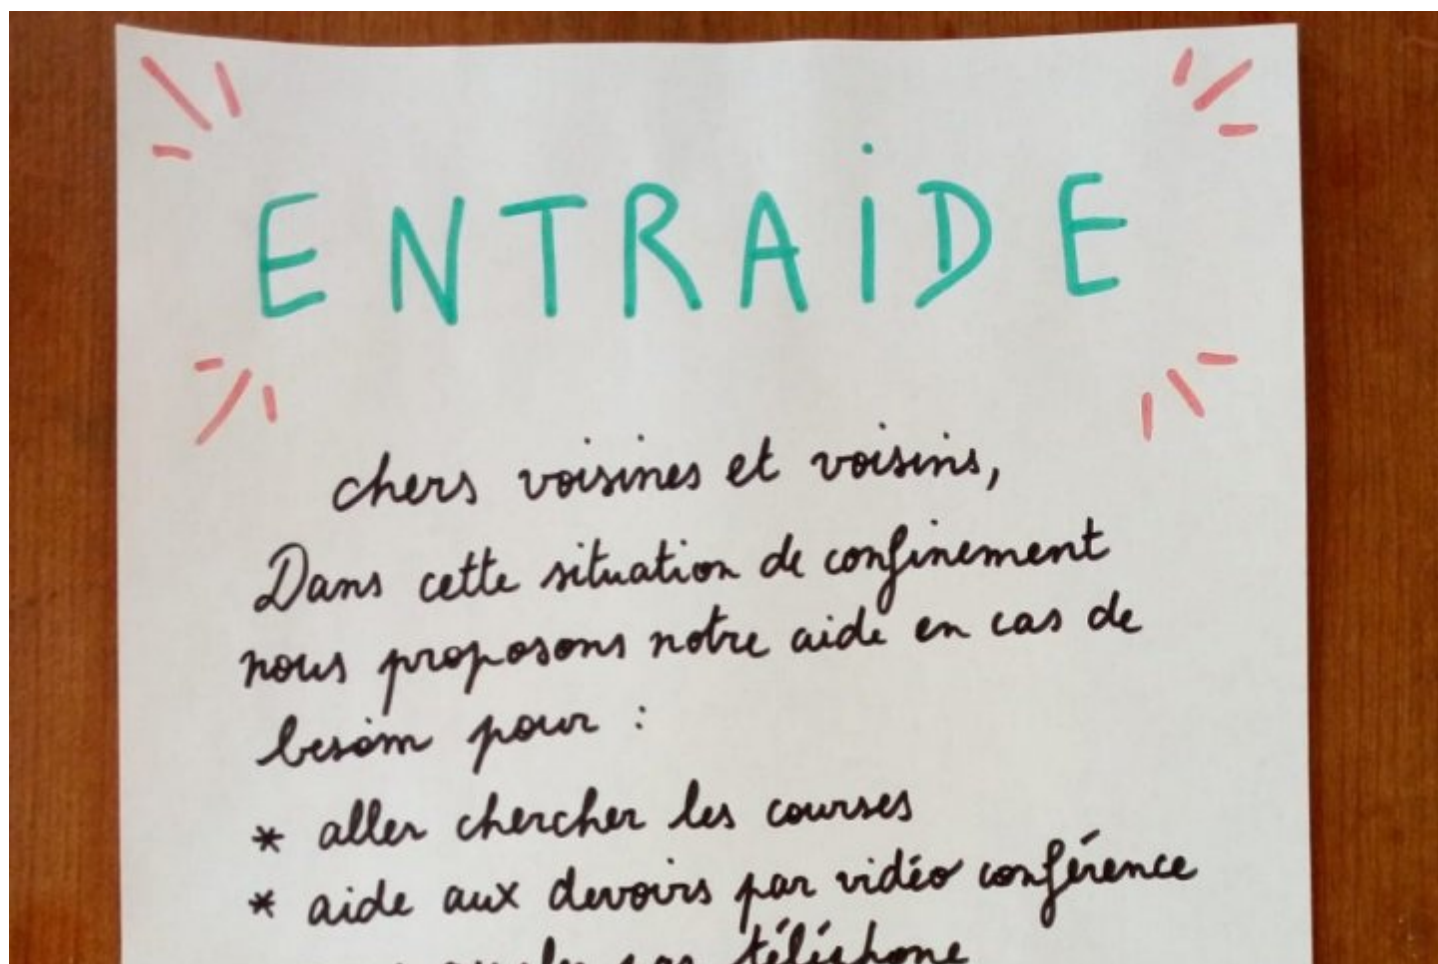 ENTRAiDE
chers voisines et voisins,
Dans cette situation de confinement
nous proposons notre aide en cas de
besoin pour :
* aller chercher les courses
* aide aux devoirs par vidéo conférence
par téléphone